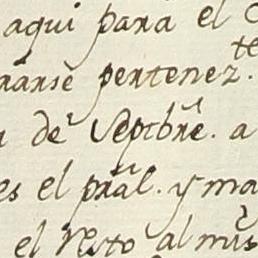 aqui para el
pertenez.te
de Septbre. a
es el pral. y ma
el resto al mis